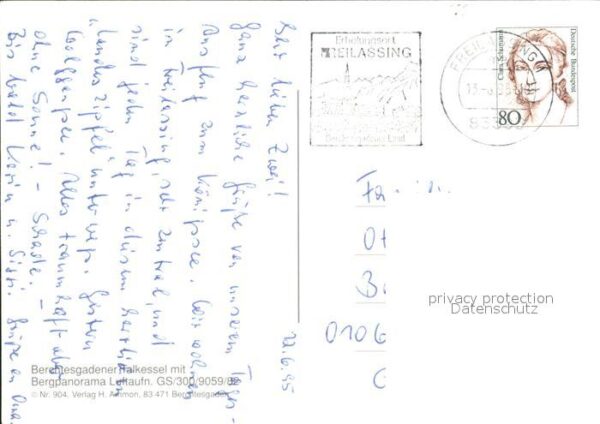 Ihr lieben Zwei!
ganz herzliche Grüße von unserem Tages-
Ausflug zum Königssee. Wir wohnen
in Freilassing, sehr zentral, und
sind jeden Tag in diesem herrlichen
"Landeszipfel" unterwegs. Gestern
Wolfgangsee. Alles traumhaft aber
ohne Sonne! - Schade. -
Bis bald Karin u. Sigi Grüße an Oma
22.6.95
Erholungsort
FREILASSING
Berchtesgadener Land
FREILASSING
83395
Clara Schumann
Deutsche Bundespost
80
Fa
Ot
B
0106
privacy protection
Datenschutz
Berchtesgadener Talkessel mit
Bergpanorama Luftaufn. GS/300/9059/82
© Nr. 904, Verlag H. Ammon, 83 471 Berchtesgaden